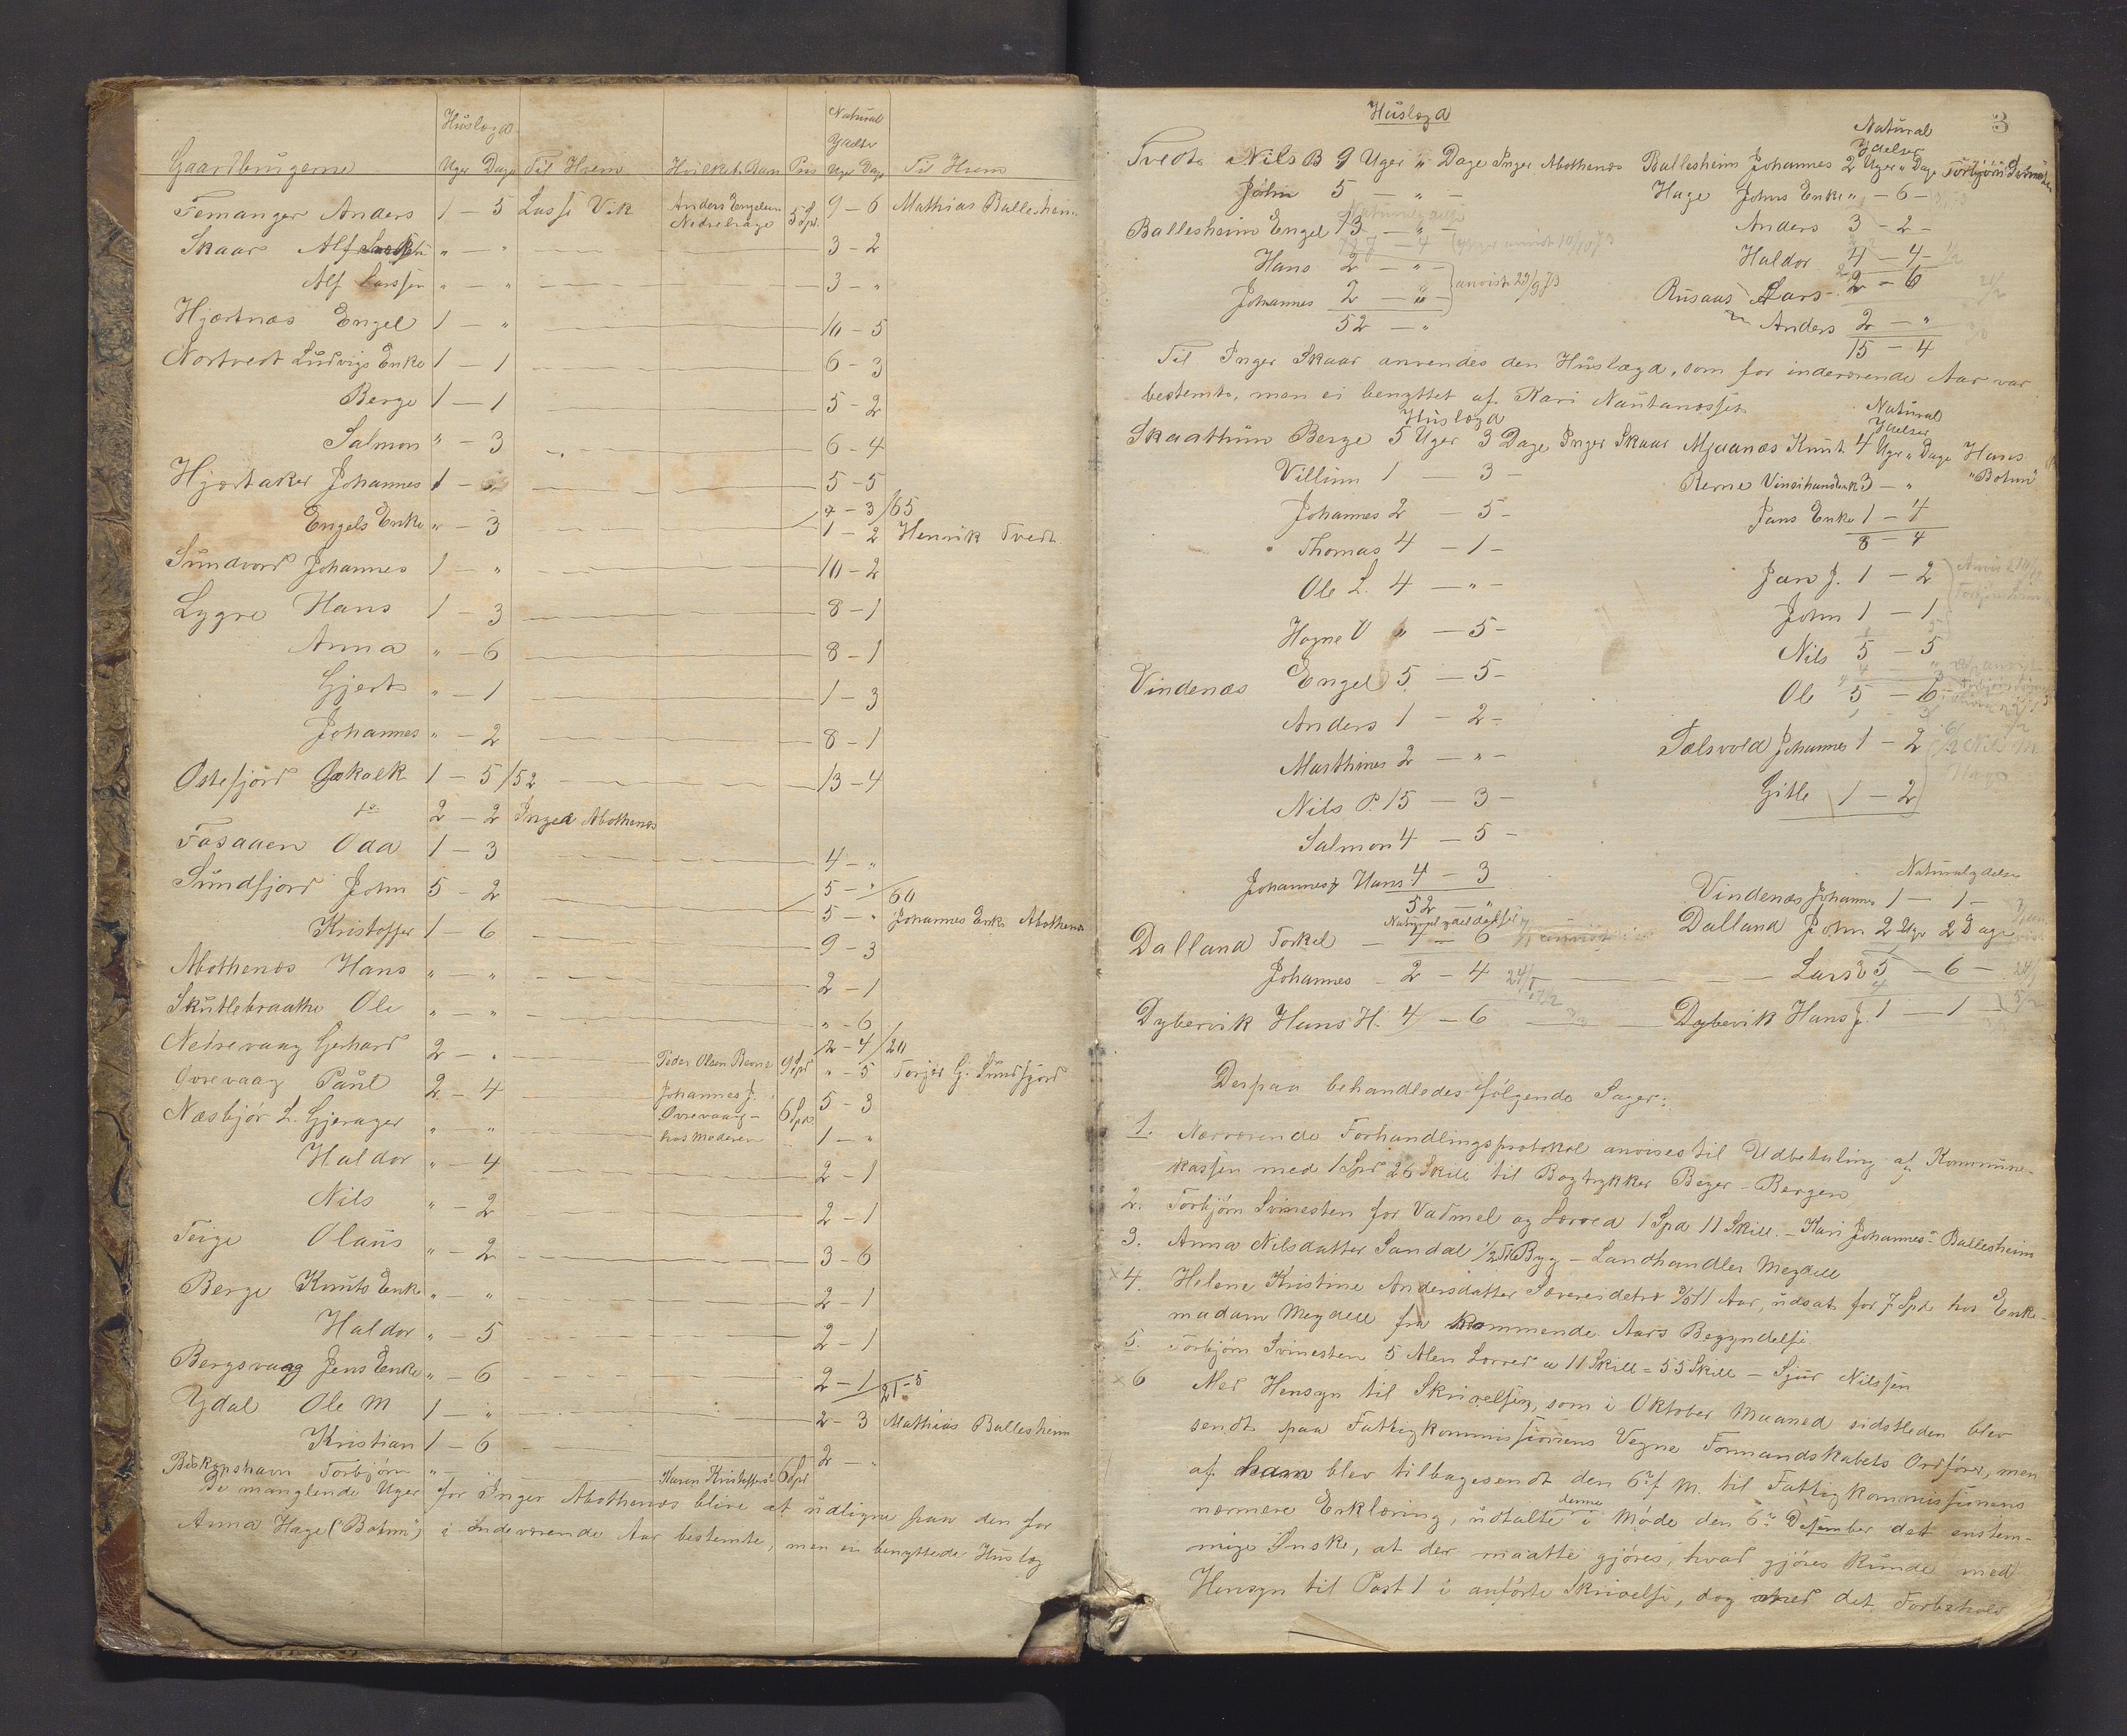 Huslægd
Natural
Ydelse
Gaardbrugerne Uger Dage Til Hvem Hvilket Barn Pris Uger Dage Til Hvem
Femanger Anders 1 – 5 Lasse Vik Anders Engelsen Nedrehage 5 Spd. 9 – 6 Mathias Ballesheim
Skaar Alf " – " 3 – 2
Alf Larssen " – " 3 – "
Hjertnæs Engel 1 – " 10 – 5
Nortvedt Ludvigs Enke 1 – 1 6 – 3
Berge 1 – 1 5 – 2
Salmon " – 3 6 – 4
Hjertaker Johannes 1 – 5 – 5
7 – 3 / 65
Engels Enke " – 3 1 – 2 Henrik Tvedt
Sundvord Johannes 1 – " 10 – 2
Lygre Hans 1 – 3 8 – 1
Anna " – 6 8 – 1
Gjert " – 1 1 – 3
Johannes " – 2 8 – 1
Østefjord Gokalk 1 – 5 / 52 13 – 4
do 2 – 2 Inger Abothenæs
Fosaaen Odd 1 – 3 4 – "
Sundfjord John 5 – 2 5 – " / 60
5 – " Johannes Enke Abothenæs
Kristoffer 1 – 6 9 – 3
Abothenæs Hans " – " 2 – 1
Skutlebraathe Ole " – " " – 6
2 – 4 / 20
Nedrevaag Gerhard 2 – " Peder Olsen Revne 9 Spd " – 5 Torger G. Sundfjord
Øvrevaag Paul 2 – 4 Johannes J. Øvrevaag – hos Moderen 6 Spd. 5 – 3
Næsbjør L. Gjerager " – " 1 – "
Haldor " – 4 2 – 1
Nils " – 2 2 – 1
Teige Olaus " – 2 3 – 6
Berge Knuts Enke " – " 2 – 1
Haldor " – 5 2 – 1
Bergsvaag Jens Enke " – 6 2 – 1 / 21 – 5
Ydal Ole M 1 – " 2 – 3 Mathias Ballesheim
Kristian 1 – 6 2 – "
Biskopshavn Torbjørn " – Karen Kristoffersd 6 Spd
De manglende Uger for Inger Abothenæs blive at udligne paa den for
Anna Hage ("Botnen") i indeværende Aar bestemte, men ei benyttede Huslæg
3
Huslægd
Natural
Ydelser
Tvedt Nils B 9 Uger " Dage Inger Abothenæs Ballesheim Johannes 2 Uger " Dage Torbjørn Svinesten
John 5 – " – Hage Johns Enke " – 6 –
Ballesheim Engel 13 – " – Anders 3 – 2 –
Hans 2 – " – Haldor 4 – 4 –
Johannes 2 – " – anvist 29/9 73 Rusaas Lars 2 – 6
52 – " Anders 2 – "
15 – 4
Til Inger Skaar anvendes den Huslægd, som for indeværende Aar var
bestemt, men ei benyttet af Kari Nautanæsset.
Huslægd
Natural
Ydelser
Skaathun Berge 5 Uger 3 Dage Inger Skaar Mjaanæs Knut 4 Uger " Dage Hans
Villum 1 – 3 – Revne 3 – " "Botnen"
Johannes 2 – 5 – Jans Enke 1 – 4
Thomas 4 – 1 – 8 – 4
Ole L. 4 – " – Jan J. 1 – 2
Hogne V " – 5 – John 1 – 1
Nils 5 – 5
Vindenæs Engel 5 – 5 – Ole 5 – 6
Anders 1 – 2 –
Marthines 2 – " – Tælsvold Johannes 1 – 2
Nils P. 15 – 3 – Gitle 1 – 2
Salmon 4 – 5 –
Johannes Hans 4 – 3
52 – "
Naturalydelse
Vindenæs Johannes 1 – 1 –
Dalland Torkel – 4 – 6 Dalland John 2 Uger 2 Dage
Johannes – 2 – 4 – Lars 5 – 6 –
Dybervik Hans H. 4 – 6 – Dybevik Hans J. 1 – 1 –
Derpaa behandledes følgende Sager:
1. Nærværende Forhandlingsprotokol anvises til Udbetaling af Kommune-
kassen med 1 Spd 26 Skill til Bogtrykker Beyer – Bergen
2. Torbjørn Svinesten for Vadmel og Lærred 1 Spd 11 Skill. – Kari Johannes – Ballesheim
3. Anna Nilsdatter Sandal 1/2 Td Byg – Landhandler Meydell
× 4. Helene Kristine Andersdatter 11 Aar, udsat for 7 Spd. hos Enke-
madam Meydell fra kommende Aars Begyndelse.
5. Torbjørn Svinesten 5 Alen Lærred a 11 Skill = 55 Skill – Sjur Nilssen
× 6 Med Hensyn til Skrivelsen, som i Oktober Maaned sidstleden blev
sendt paa Fattigkommissionens Vegne Formandskabets Ordfører, men
af ham blev tilbagesendt den 6te f. M. til Fattigkommissionens
nærmere Erklæring, udtalte denne i Møde den 6te Desember det enstem-
mige Ønske, at der maatte gjøres, hvad gjøres kunde med
Hensyn til Post 1 i anførte Skrivelse, dog med det Forbehold